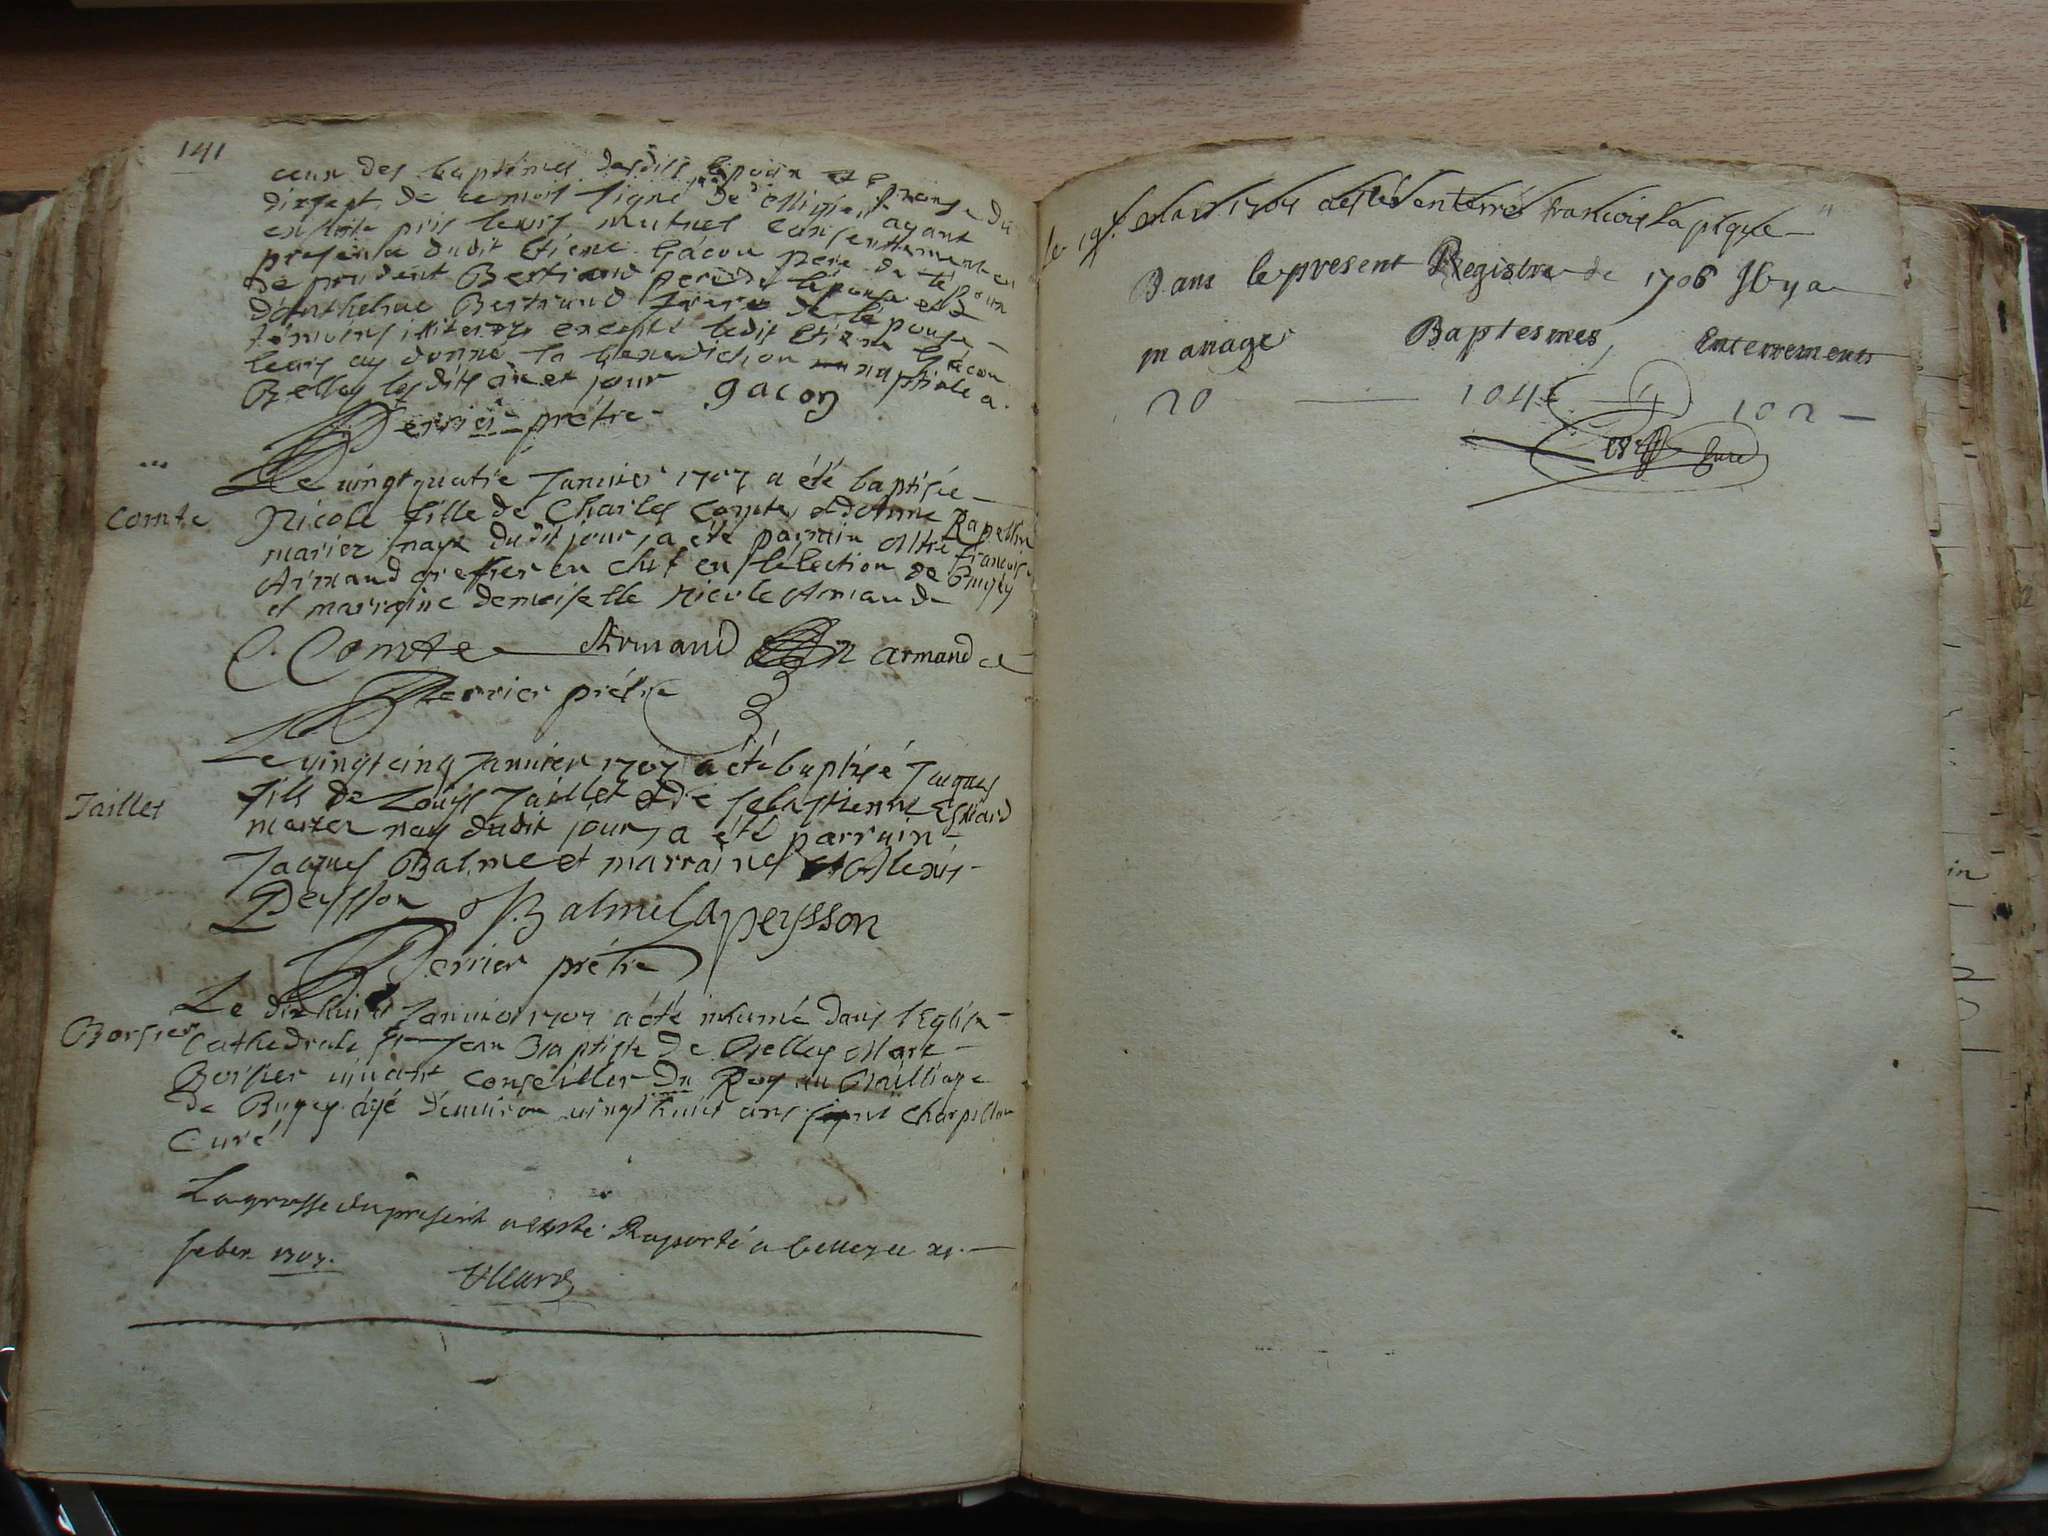 141
ceux des baptêmes desdits époux et épouse du
dixsept de ce mois signé de ayant
ensuite pris leurs mutuel consentement en
presence dudit Etiene Gacon pere de l'époux
de prudent Bertrand pere de l'épouse et de
d'Anthelme Bertrand frere de l'épouse
témoins illiterez excepté ledit Etiene Gacon
leurs ay donné la benediction nuptiale a
Belley lesdits an et jour gacon
Perrier prêtre
Le vingt quatre Janvier 1707 a été baptisée
Comte
Nicole fille de Charles Comte, et d'
mariez naye dudit jour, a été parrain Mtre François
Armand greffier en chef en l'election de Bugey
et marraine demoiselle Nicole Armande
C. Comte Armand N armande
Perrier prêtre
Le vingt cinq Janvier 1707 a été baptisé Jacques
Jaillet
fils de Louys Jaillet et de Sebastienne
mariez nay dudit jour, a été parrain
Jacques Balme et marraine Alexis
Peysson Balme La peysson
Perrier prêtre
Le dixhuit Janvier 1707 a été inhumé dans l'Eglise
Borsier
Cathedrale St Jean Baptiste de Belley Marc
Borsier vivant conseiller du Roy au Bailliage
de Bugey âgé d'environ vingt huit ans signé Charpillon
Curé
La grosse du present a esté Raporté a belley ce
feber 1707.
Villard
le mars 1705 a esté enterré francois la pique
Dans le present Registre de 1706 Il y a
mariages Baptesmes, Enterrements
20 104 102
Curé